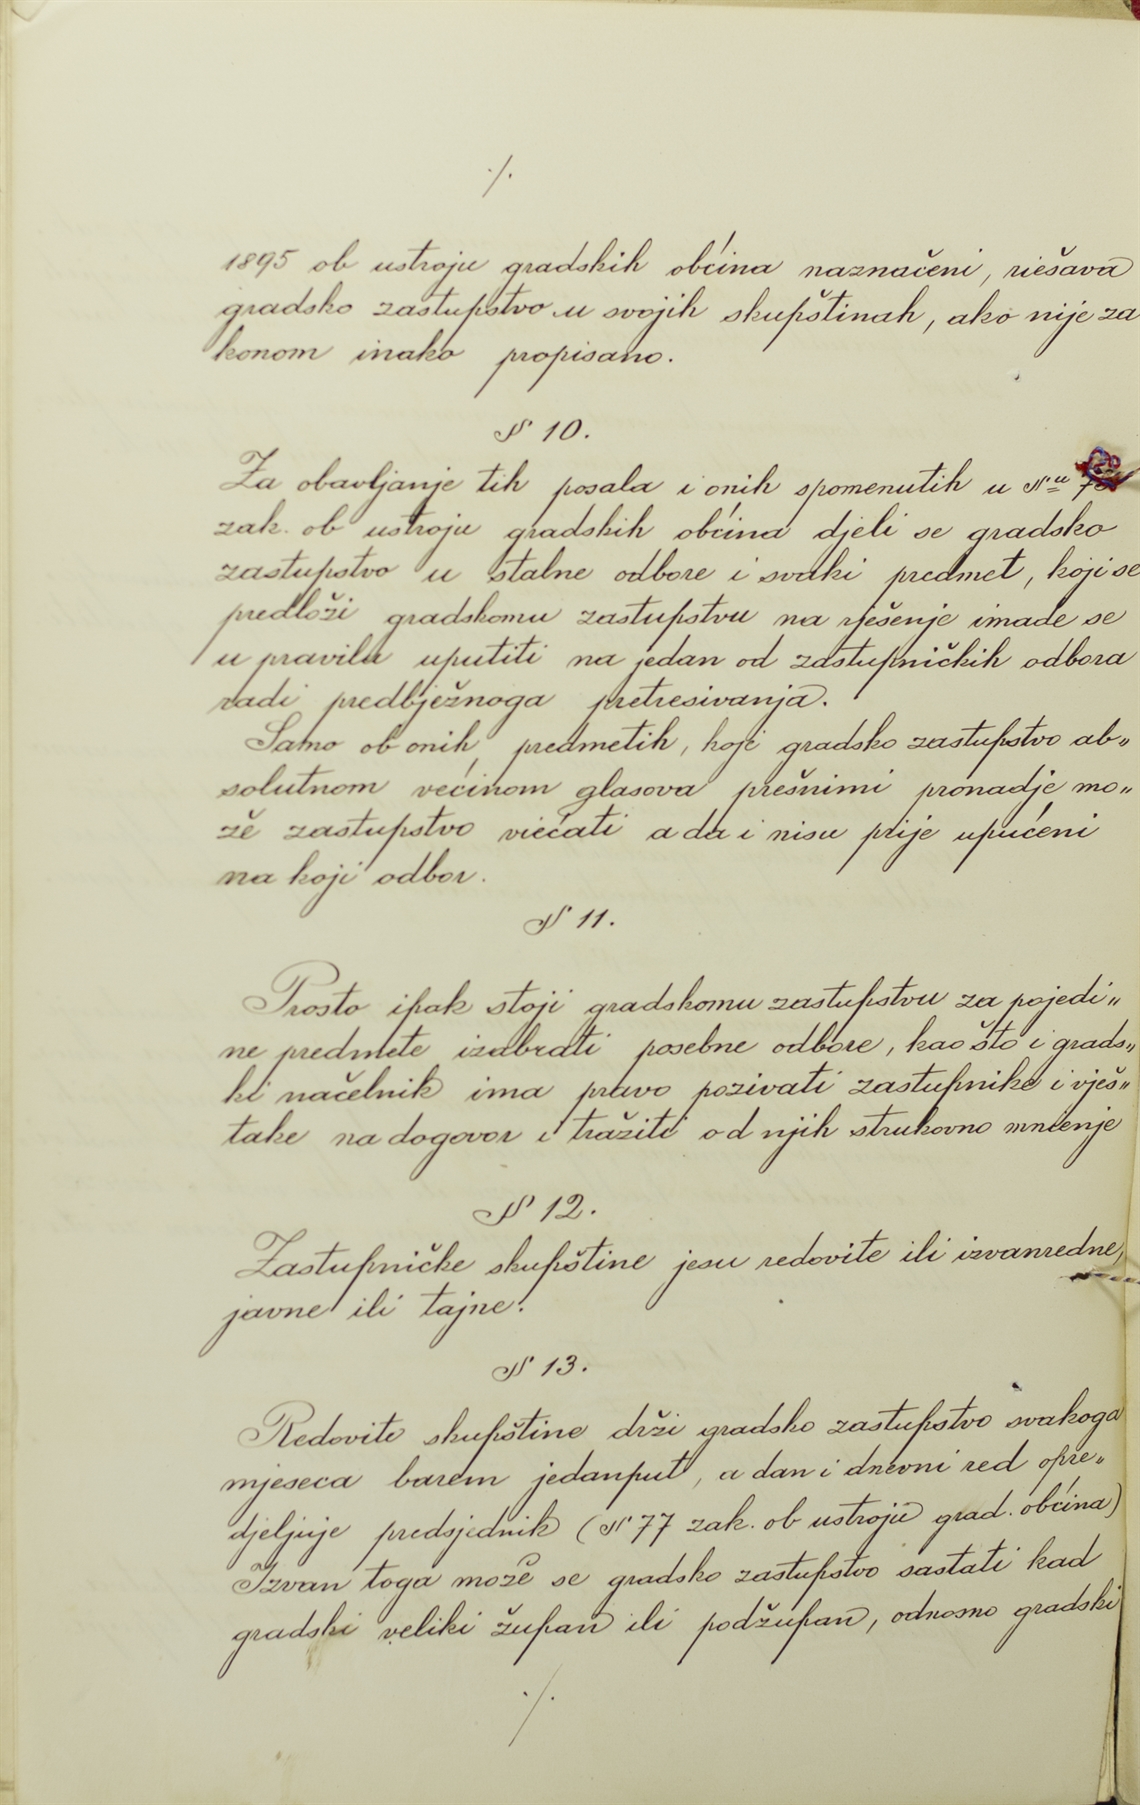 ·/·
1895 ob ustroju gradskih obćina naznačeni, riešava
gradsko zastupstvo u svojih skupštinah, ako nije za
konom inako propisano.
§ 10.
Za obavljanje tih posala i onih spomenutih u §u
zak. ob ustroju gradskih obćina djeli se gradsko
zastupstvo u stalne odbore i svaki predmet, koji se
predloži gradskomu zastupstvu na rješenje imade se
u pravilu uputiti na jedan od zastupničkih odbora
radi predbježnoga pretresivanja.
Samo ob onih predmetih, koje gradsko zastupstvo ab„
solutnom većinom glasova prešnimi pronadje mo„
že zastupstvo viećati a da i nisu prije upućeni
na koji odbor.
§ 11.
Prosto ipak stoji gradskomu zastupstvu za pojedi„
ne predmete izabrati posebne odbore, kao što i grads„
ki načelnik ima pravo pozivati zastupnike i vješ„
take na dogovor i tražiti od njih strukovno mnienje
§ 12.
Zastupničke skupštine jesu redovite ili izvanredne,
javne ili tajne.
§ 13.
Redovite skupštine drži gradsko zastupstvo svakoga
mjeseca barem jedanput, a dan i dnevni red opre„
djeljuje predsjednik (§ 77 zak. ob ustroju grad. obćina)
Izvan toga može se gradsko zastupstvo sastati kad
gradski veliki župan ili podžupan, odnosno gradski
·/·